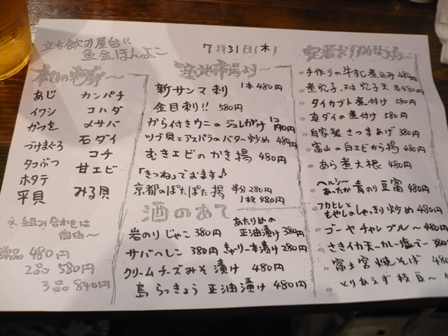 立ち飲み屋台!!
魚金ほんよこ
7月31日(木)
あじ カンパチ
イワシ コハダ
かつを メサバ
石ダイ
づけまぐろ コチ
たこぶつ 甘エビ
ホタテ
平貝 みる貝
※組み合わせは
自由〜
1品 480円
2品 580円
3品 840円
築地市場より〜
新サンマ刺 1本 480円
金目刺!! 580円
から付きウニのジュレがけ 1コ 190円
ツブ貝とアスパラのバター炒め 480円
むきエビのかき揚 480円
「きつね」でてます♪
京都のぽたぽた揚 半分 280円
1枚 480円
酒のあて
岩のりじゃこ 380円
あたりめの正油漬け 380円
サバへしこ 380円
きゅうり一本漬け 280円
クリームチーズみそ漬け 480円
島らっきょう正油漬け 480円
定番おすすめ
手作りの牛すじ煮込み 480円
タイカブト煮付け 480円
真ダイの煮付け 480円
自家製さつまあげ 380円
富山の白エビから揚 480円
あら煮大根 480円
青のり豆腐 480円
フカヒレともやしのしゃっきり炒め 480円
ゴーヤチャンプルー 480円
さきイカ天〜カレー塩で〜 380円
富士宮焼そば 480円
とりあえず枝豆〜